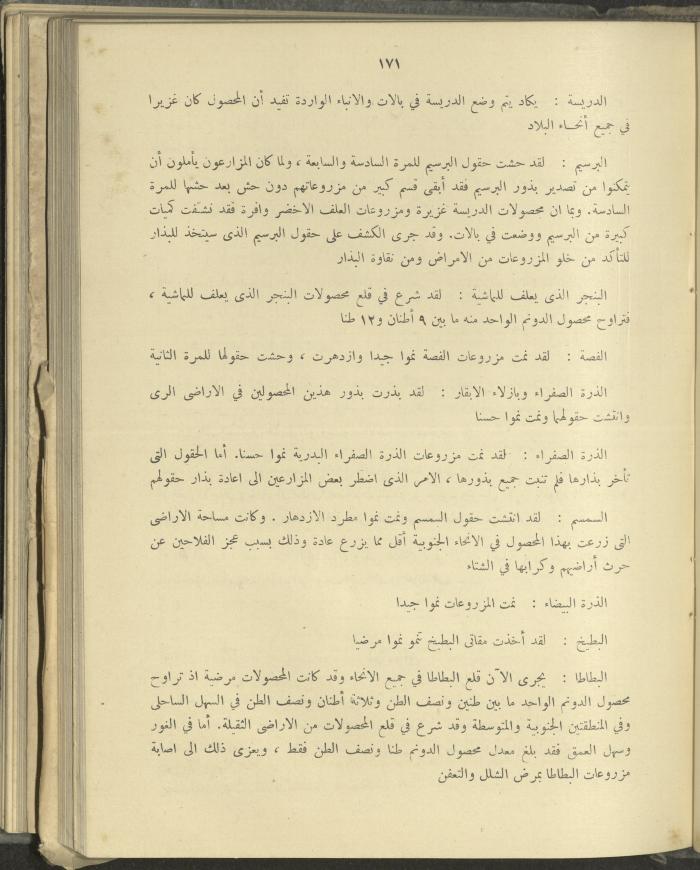 ١٧١
الدريسة : يكاد يتم وضع الدريسة في بالات والانباء الواردة تفيد أن المحصول كان غزيرا
في جميع أنحاء البلاد
البرسيم : لقد حشت حقول البرسيم للمرة السادسة والسابعة ، ولما كان المزارعون يأملون أن
يتمكنوا من تصدير بذور البرسيم فقد أبقى قسم كبير من مزروعاتهم دون حش بعد حشها للمرة
السادسة. وبما ان محصولات الدريسة غزيرة ومزروعات العلف الاخضر وافرة فقد نشفت كميات
كبيرة من البرسيم ووضعت في بالات. وقد جرى الكشف على حقول البرسيم الذى سيتخذ للبذار
للتأكد من خلو المزروعات من الامراض ومن نقاوة البذار
البنجر الذى يعلف للماشية : لقد شرع في قلع محصولات البنجر الذى يعلف للماشية ،
فتراوح محصول الدونم الواحد منه ما بين ٩ أطنان و١٢ طنا
الفصة : لقد نمت مزروعات الفصة نموا جيدا وازدهرت ، وحشت حقولها للمرة الثانية
الذرة الصفراء وبازلاء الابقار : لقد بذرت بذور هذين المحصولين في الاراضى الرى
وانتشت حقولهما ونمت نموا حسنا
الذرة الصفراء : لقد نمت مزروعات الذرة الصفراء البدرية نموا حسنا. أما الحقول التى
تأخر بذارها فلم تنبت جميع بذورها ، الامر الذى اضطر بعض المزارعين الى اعادة بذار حقولهم
السمسم : لقد انتشت حقول السمسم ونمت نموا مطرد الازدهار . وكانت مساحة الاراضى
التى زرعت بهذا المحصول في الانحاء الجنوبية أقل مما يزرع عادة وذلك بسبب عجز الفلاحين عن
حرث أراضيهم وكرابها في الشتاء
الذرة البيضاء : نمت المزروعات نموا جيدا
البطيخ : لقد أخذت مقاتى البطيخ تنمو نموا مرضيا
البطاطا : يجرى الآن قلع البطاطا في جميع الانحاء وقد كانت المحصولات مرضية اذ تراوح
محصول الدونم الواحد ما بين طنين ونصف الطن وثلاثة أطنان ونصف الطن في السهل الساحلى
وفي المنطقتين الجنوبية والمتوسطة وقد شرع في قلع المحصولات من الاراضى الثقيلة. أما في الغور
وسهل العمق فقد بلغ معدل محصول الدونم طنا ونصف الطن فقط ، ويعزى ذلك الى اصابة
مزروعات البطاطا بمرض الشلل والتعفن